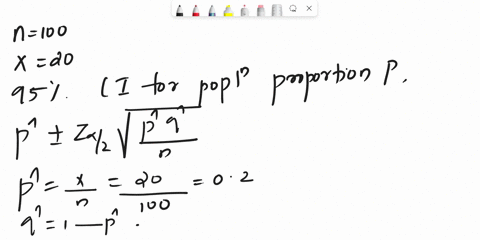 n=100
x=20
95%. CI for popln proportion P.
p^ ± Zα/2 √(p^ q^ / n)
p^ = x/n = 20/100 = 0.2
q^ = 1 — p^ .